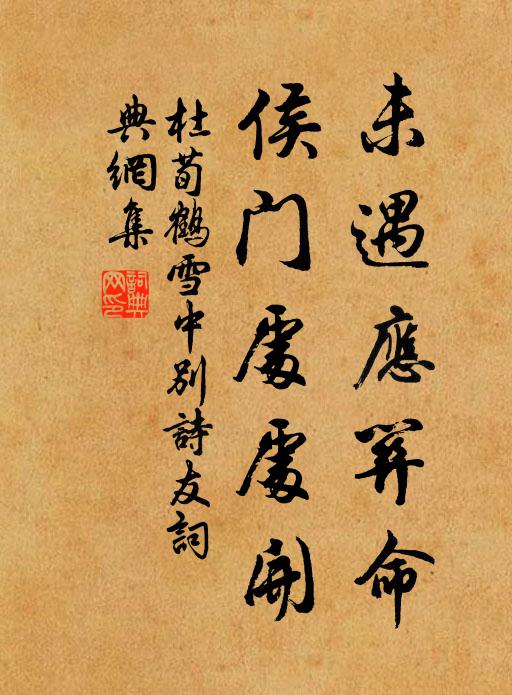 未遇應算命
侯門處處開
杜荀鶴雪中別詩友詞
典網集
詞典网印